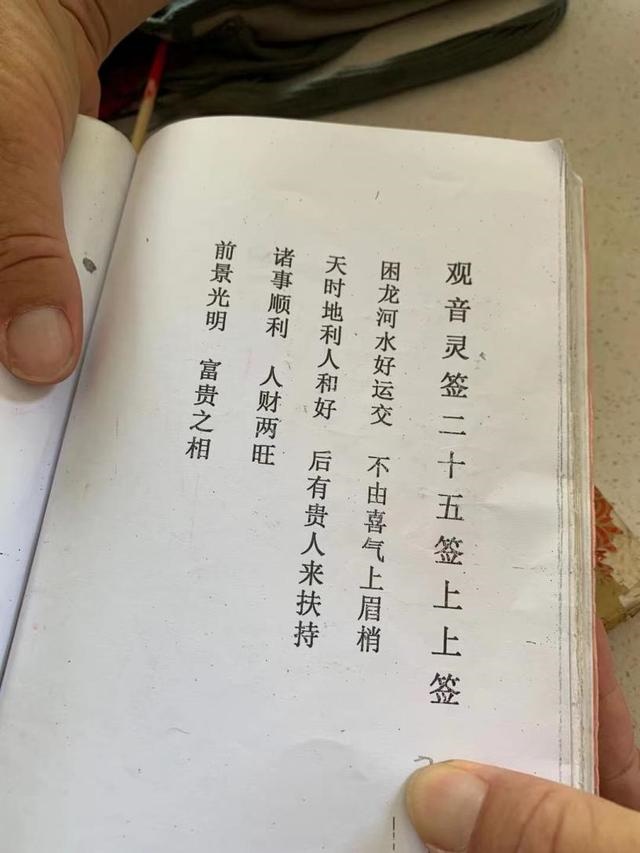 观音灵签二十五签上上签
困龙河水好运交 不由喜气上眉梢
天时地利人和好 后有贵人来扶持
诸事顺利 人财两旺
前景光明 富贵之相